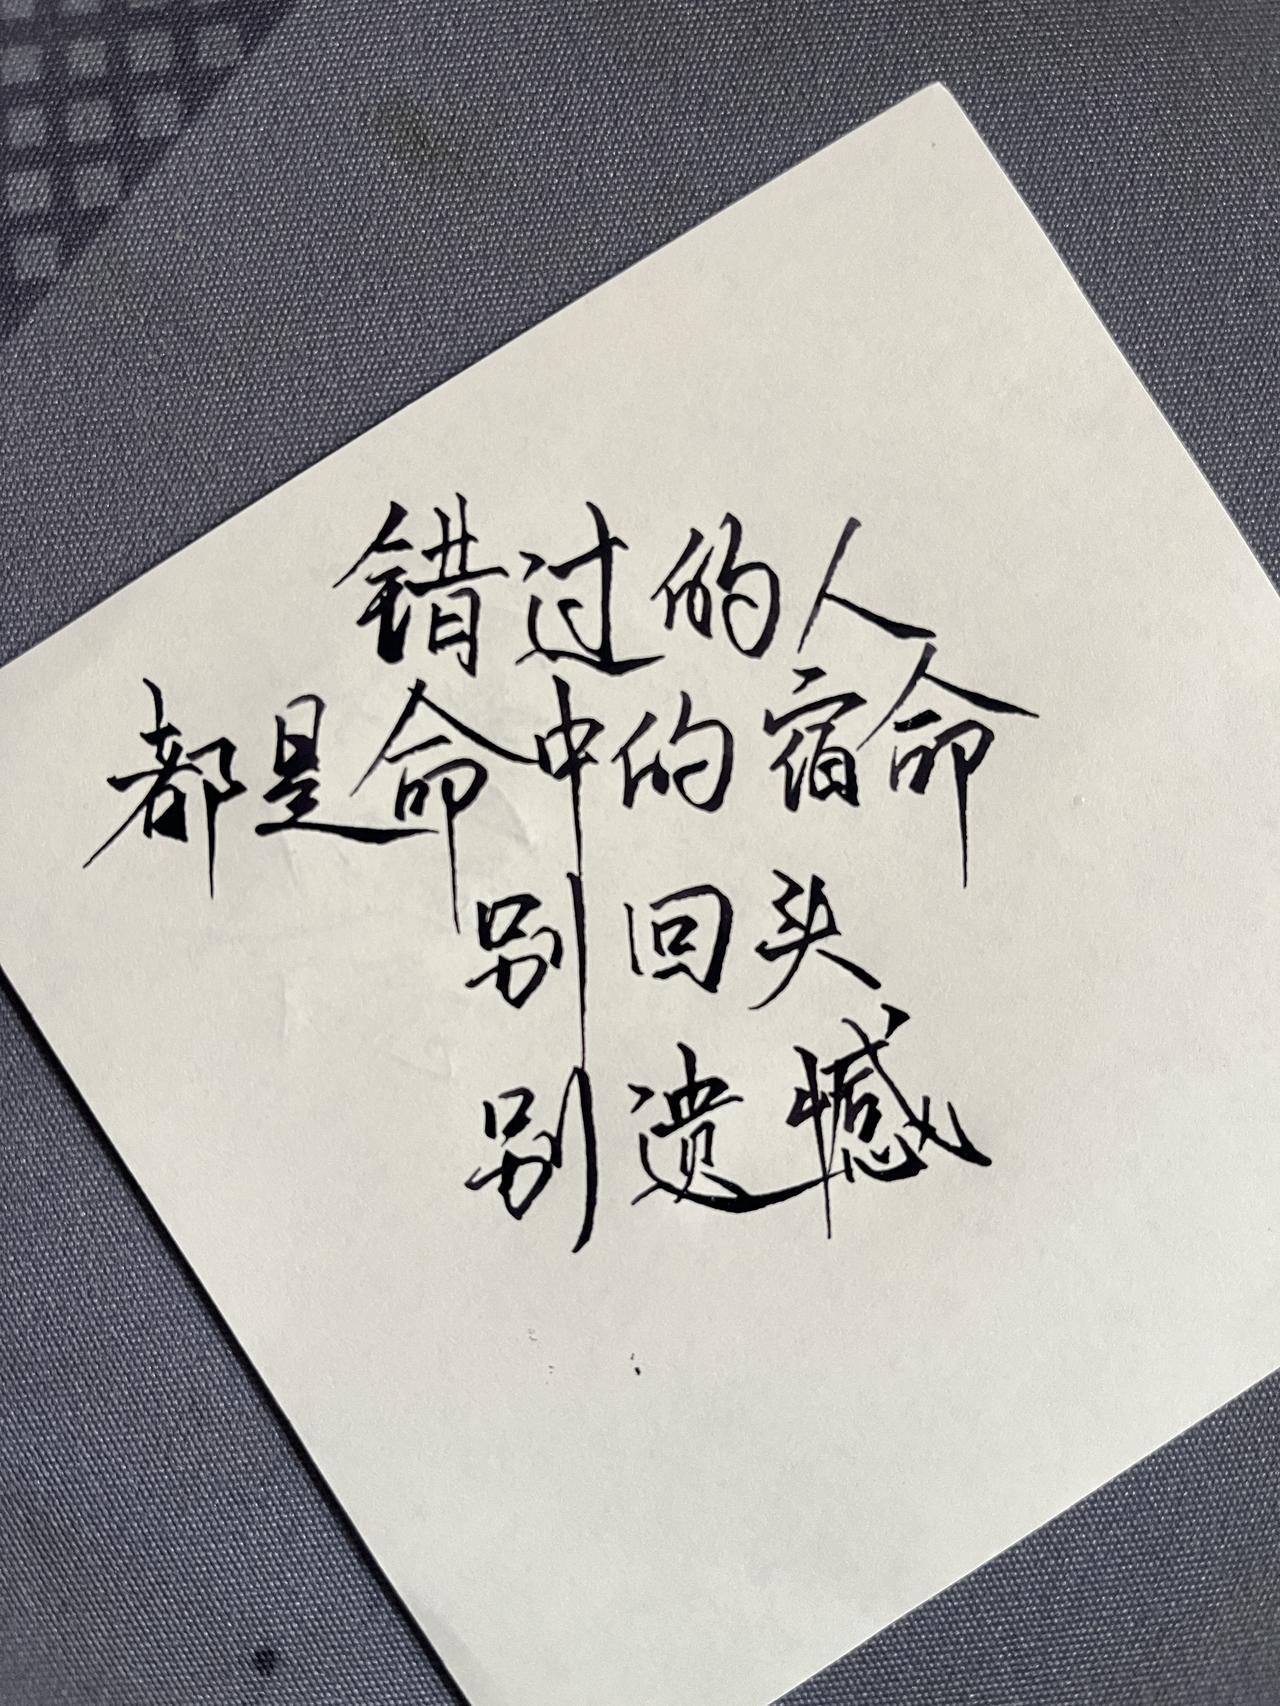 错过的人
都是命中的宿命
别回头
别遗憾